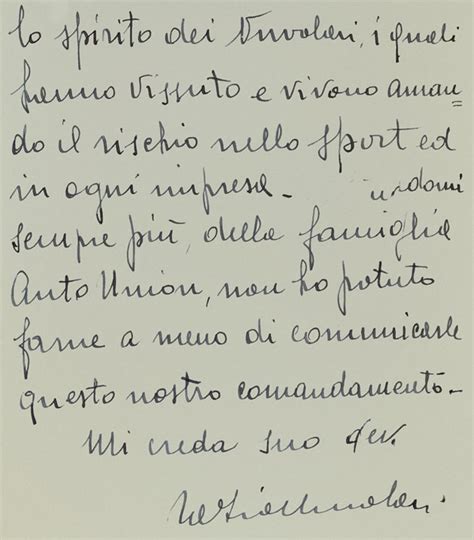 lo spirito dei Nuvolari, i quali
hanno vissuto e vivono aman=
do il rischio nello sport ed
in ogni impresa_
sempre più, della famiglia
Auto Union, non ho potuto
farne a meno di comunicarle
questo nostro comandamento_
Mi creda suo dev.
Nuvolari.